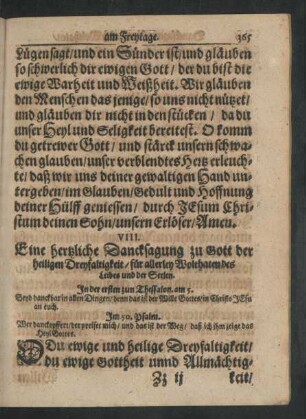 am Freytage. 365
Lügen sagt/und ein Sünder ist/und gläuben
so schwerlich dir ewigen Gott/der du bist die
ewige Warheit und Weißheit. Wir gläuben
den Menschen das jenige/so uns nicht nützet/
und gläuben dir nicht in den stücken/da du
unser Heyl und Seligkeit bereitest. O komm
du getrewer Gott/und stärck unsern schwa-
chen glauben/unser verblendtes Hertz erleuch-
te/daß wir uns deiner gewaltigen Hand un-
tergeben/im Glauben/Gedult und Hoffnung
deiner Hülff geniessen/durch JEsum Chri-
stum deinen Sohn/unsern Erlöser/Amen.
VIII.
Eine hertzliche Dancksagung zu Gott der
heiligen Dreyfaltigkeit/für allerley Wolthaten des
Leibes und der Seelen.
In der ersten zun Thessalon. am 5.
Seyd danckbar in allen Dingen/denn das ist der Wille Gottes/in Christo JEsu
an euch.
Im 50. Psalm.
Wer danckopffert/der preiset mich/und das ist der Weg/daß ich ihm zeige das
Heyl Gottes.
O Du ewige und heilige Dreyfaltigkeit/
du ewige Gottheit unnd Allmächtig-
Zz ij keit/